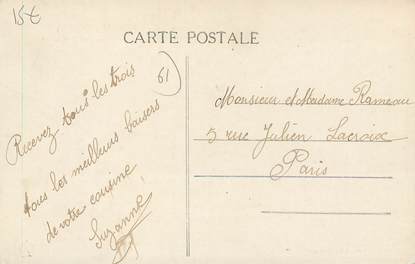 15€
CARTE POSTALE
61
Recevez tous les trois
tous les meilleurs baisers
de votre cousine
Suzanne
Monsieur et Madame Rameau
5 rue Julien Lacroix
Paris